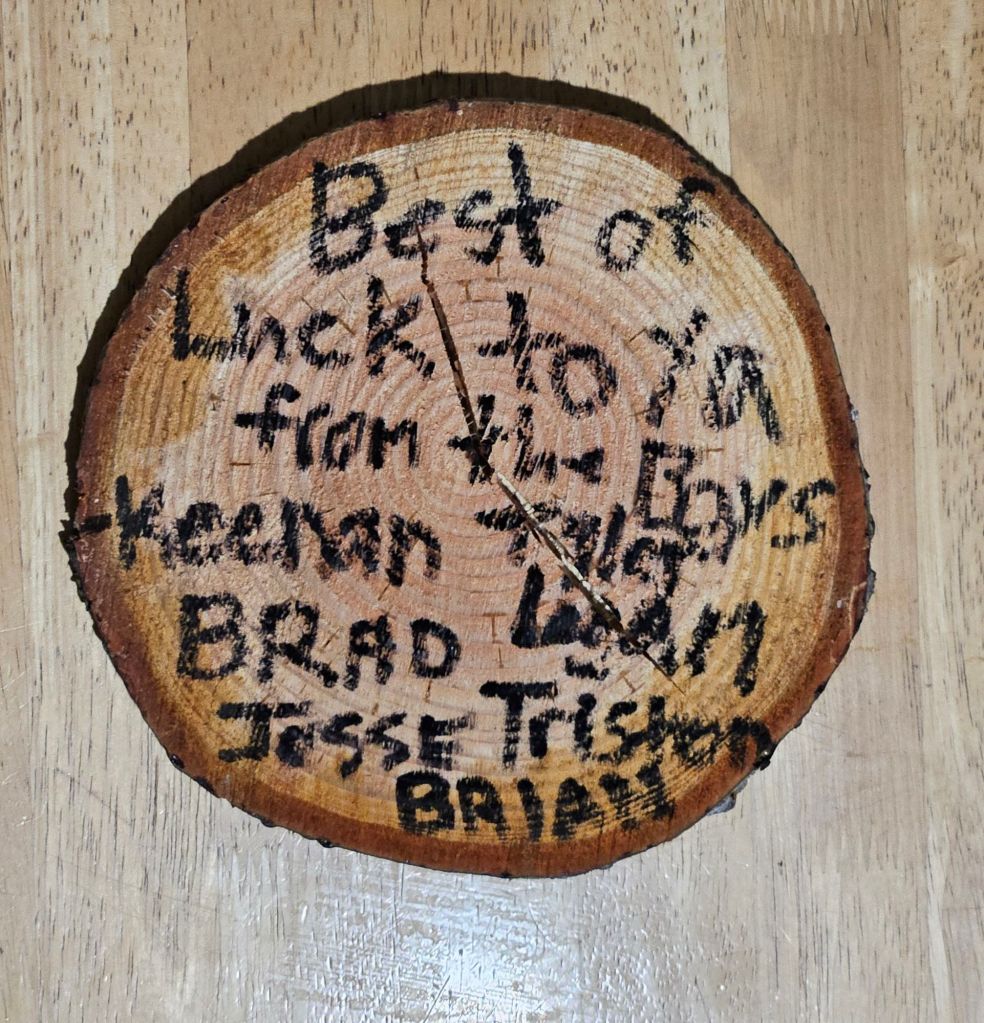 Best of
Luck to Ya
from the Boys
-Keenan
BRAD Logan
Jesse Triston
BRIAN